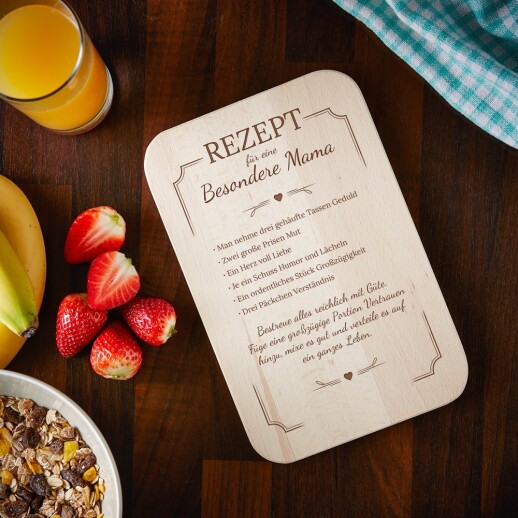 REZEPT
für eine
Besondere Mama
· Man nehme drei gehäufte Tassen Geduld
· Zwei große Prisen Mut
· Ein Herz voll Liebe
· Je ein Schuss Humor und Lächeln
· Ein ordentliches Stück Großzügigkeit
· Drei Päckchen Verständnis
Bestreue alles reichlich mit Güte.
Füge eine großzügige Portion Vertrauen
hinzu, mixe es gut und verteile es auf
ein ganzes Leben.